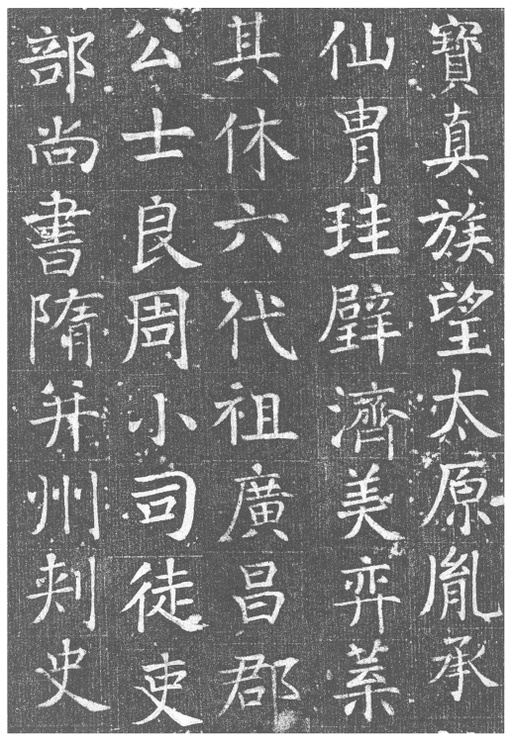 寶真族望太原胤承
仙冑珪璧濟美弈葉
其休六代祖廣昌郡
公士良周小司徒吏
部尚書隋并州刾史